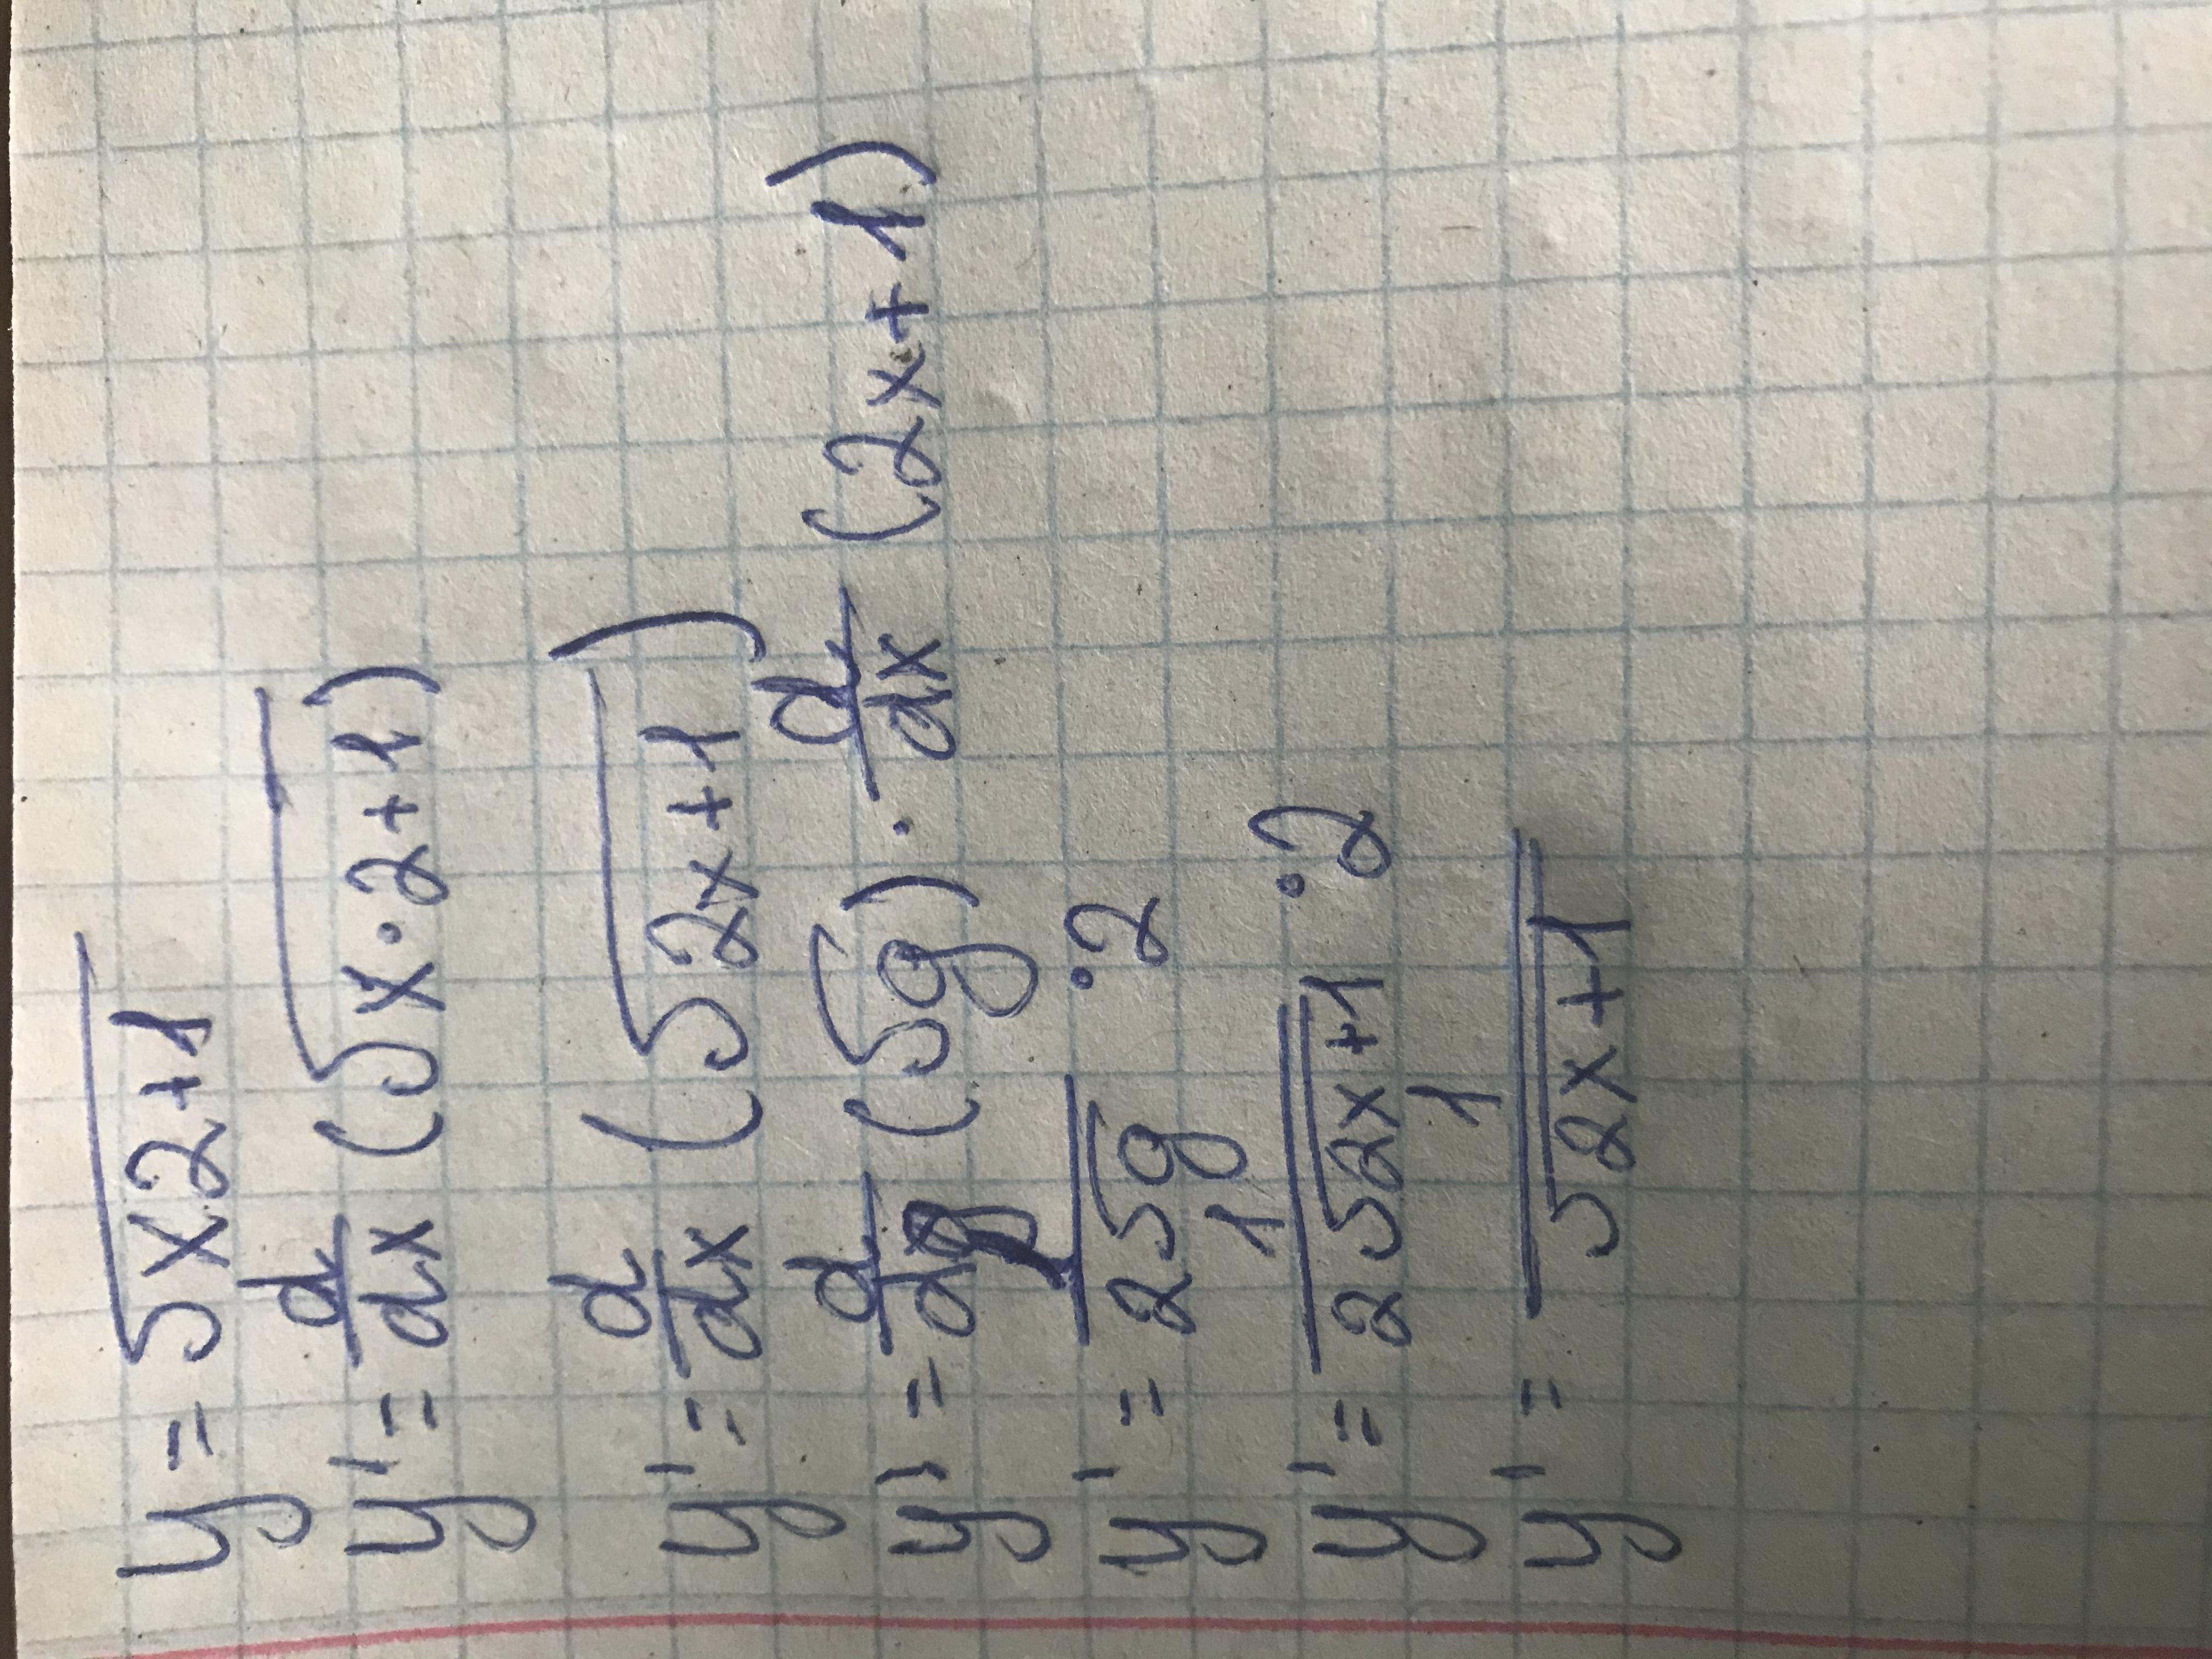 y = √x2+1
y' = d/dx (√x·2+1)
y' = d/dx (√2x+1)
y' = d/dg (√g) · d/dx (2x+1)
y' = 1/2√g · 2
y' = 1/2√2x+1 · 2
y' = 1/√2x+1